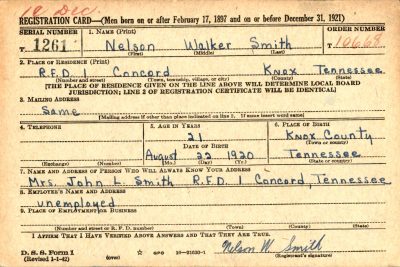 10 Dec.
REGISTRATION CARD—(Men born on or after February 17, 1897 and on or before December 31, 1921)
SERIAL NUMBER 1. NAME (Print) ORDER NUMBER
T 1261 Nelson Walker Smith T 10668
(First) (Middle) (Last)
2. PLACE OF RESIDENCE (Print)
R.F.D. Concord Knox Tennessee
(Number and street) (Town, township, village, or city) (County) (State)
[THE PLACE OF RESIDENCE GIVEN ON THE LINE ABOVE WILL DETERMINE LOCAL BOARD
JURISDICTION; LINE 2 OF REGISTRATION CERTIFICATE WILL BE IDENTICAL]
3. MAILING ADDRESS
Same
[Mailing address if other than place indicated on line 2. If same insert word same]
4. TELEPHONE 5. AGE IN YEARS 6. PLACE OF BIRTH
21 Knox County
DATE OF BIRTH (Town or county)
August 22 1920 Tennessee
(Exchange) (Number) (Mo.) (Day) (Yr.) (State or country)
7. NAME AND ADDRESS OF PERSON WHO WILL ALWAYS KNOW YOUR ADDRESS
Mrs. John L. Smith R.F.D. 1 Concord, Tennessee
8. EMPLOYER'S NAME AND ADDRESS
unemployed
9. PLACE OF EMPLOYMENT OR BUSINESS
(Number and street or R. F. D. number) (Town) (County) (State)
I AFFIRM THAT I HAVE VERIFIED ABOVE ANSWERS AND THAT THEY ARE TRUE.
D. S. S. Form 1
(Revised 1-1-42) (over) GPO 16—21630-1 Nelson W. Smith
(Registrant's signature)